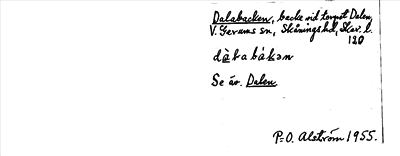 Dalabacken, backe vid torpet Dalen,
V. Gerums sn, Skånings hd, Skar. l.
120
dàkabákən
Se äv. Dalen
P=O. Alström 1955.